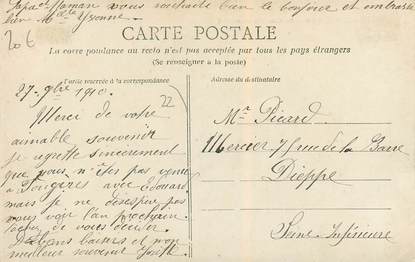 Papa et Maman vous souhaite bien le bonjour et embrasse
bien Mdelle Yvonne.
20€
CARTE POSTALE
La correspondance au recto n'est pas acceptée par tous les pays étrangers
(Se renseigner à la poste)
Partie réservée à la correspondance
27-9bre 1910.
22
Merci de votre
aimable souvenir
je regrette sincèrement
que vous n'êtes pas venu
à Fougères avec Edouard
mais je ne désespère pas
vous voir l'an prochain
tachez de vous décider
bons baisers et mon
meilleur souvenir
Adresse du destinataire
Mr Picard
Mercier 71 rue de la Barre
Dieppe
Seine Inférieure